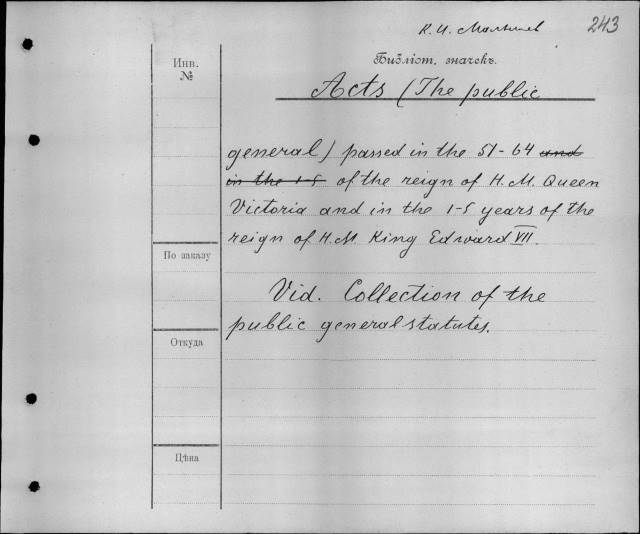 К. И. Малышев 243
Библіот. значекъ.
Инв.
№
Acts (The public
general) passed in the 51-64 and
in the 1-5 of the reign of H. M. Queen
Victoria and in the 1-5 years of the
reign of H. M. King Edward VII.
По заказу
Vid. Collection of the
public general statutes.
Откуда
Цѣна